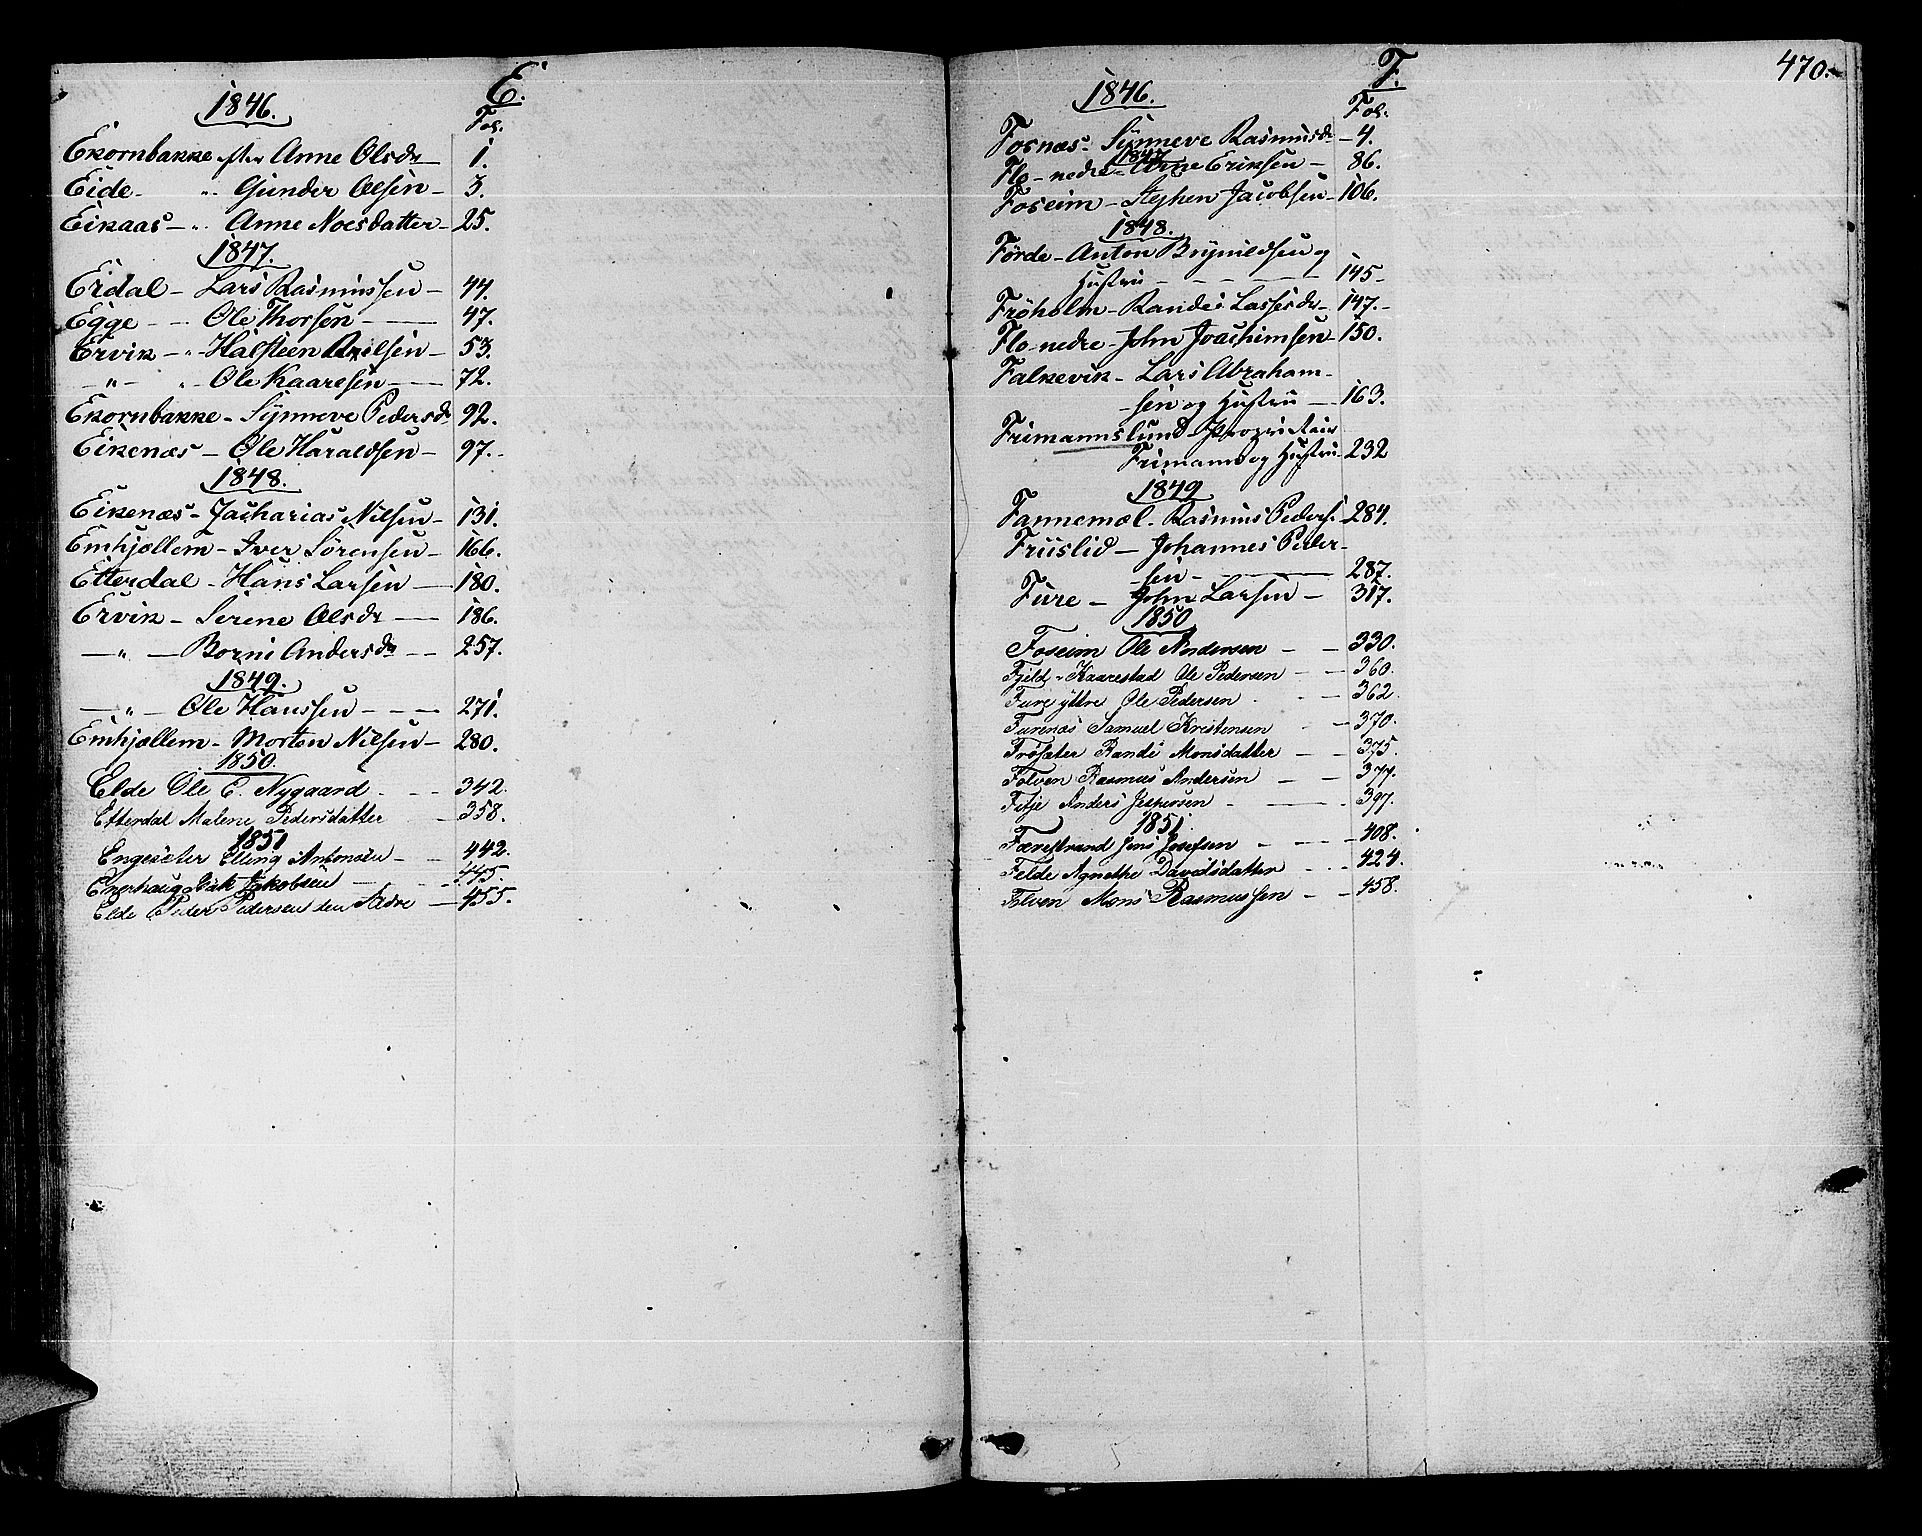 E.
1846.
Fol.
Ekornbakke efter Anne Olsdr — 1.
Eide - " Gunder Olsen - 3.
Eikaas — " Anne Noesdatter - 25.
1847.
Eidal - Lars Rasmussen - 44.
Egge - - Ole Thorsen - — 47.
Ervik - " Halsteen Nilsen - 53.
— " - " Ole Kaaresen — 72.
Ekornbakke - Synneve Pedersdr 92.
Eikenæs — Ole Haraldsen - 97.
1848.
Eikenæs - Zacharias Nilsen - 131.
Emhjellem - Iver Sörensen - 166.
Etterdal - Hans Larsen — 180.
Ervik - Serene Olsdr — 186.
— " — Borni Andersdr - - 257.
1849.
— " — Ole Hanssen - - — 271.
Emhjellem - Morten Nilsen - 280.
1850.
Elde Ole E. Nygaard - - — 342.
Etterdal Malene Pedersdatter — 358.
1851
Engesæter Elling Antonsen - - 442.
Enerhaug Isak Jakobsen — - 445.
Elde Peder Pedersen den Ældre — 455.
470.
F.
1846.
Fol.
Fosnæs - Synneve Rasmusdr - 4.
1847
Flo - nedre - Arne Eriksen - 86.
Foseim - Stephen Jacobsen - 106.
1848.
Förde - Anton Brynildsen og
Hustru - - - - - 145 -
Fröholm - Randi Lassesdr - 147. -
Flo - nedre - John Joachimsen - 150.
Falkevik - Lars Abraham-
sen og Hustru — 163.
Frimannslund - Proprietair
Frimann og Hustru - 232
1849
Fannemel - Rasmus Peders. - 284.
Friislid — Johannes Peder-
sen - — 287.
Fure — John Larsen — 317.
1850
Foseim Ole Andersen - — 330.
Fjeld - Kaarestad Ole Pedersen - — 360.
Fure yttre Ole Pedersen - — 362.
Furenæs Samuel Kristensen — 370.
Fröseter Randi Monsdatter — — 375.
Folven Rasmus Andersen — — 377.
Fitje Anders Jespersen - — - 397.
1851.
Færestrand Jens Josefsen - - — 408.
Felde Agnethe Davidsdatter - - - 424.
Folven Mons Rasmussen - - 458.